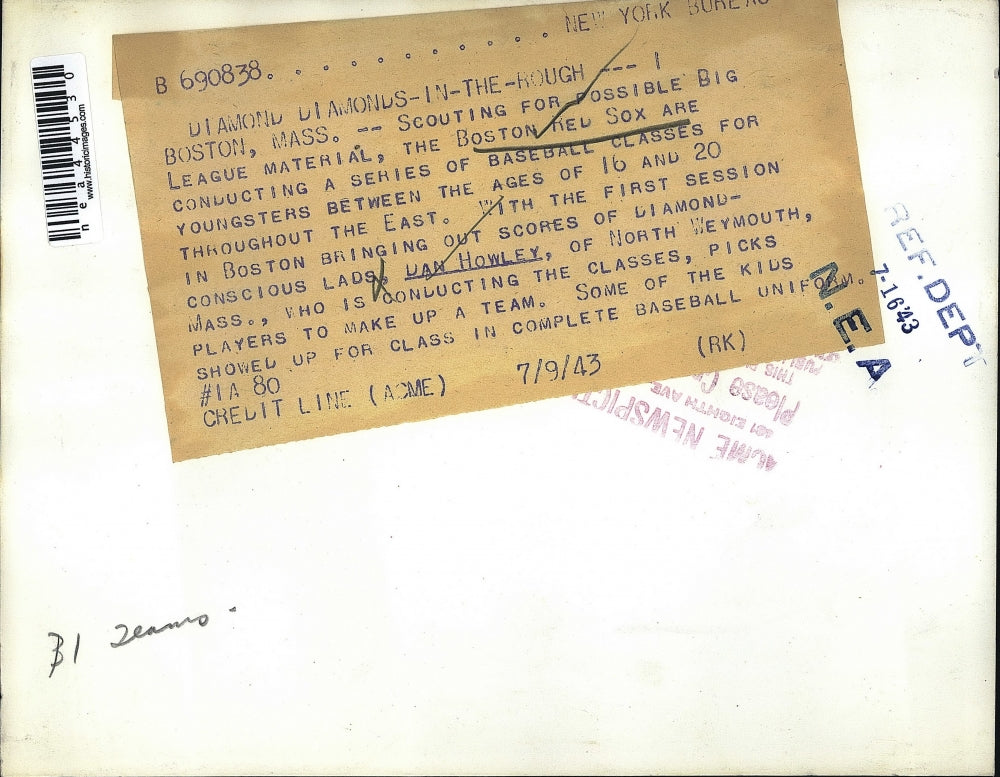 NEW YORK BUREAU
B 690838. . . . . . . . . . . .
DIAMOND DIAMONDS-IN-THE-ROUGH --- 1
BOSTON, MASS. -- SCOUTING FOR POSSIBLE BIG
LEAGUE MATERIAL, THE BOSTON RED SOX ARE
CONDUCTING A SERIES OF BASEBALL CLASSES FOR
YOUNGSTERS BETWEEN THE AGES OF 16 AND 20
THROUGHOUT THE EAST. WITH THE FIRST SESSION
IN BOSTON BRINGING OUT SCORES OF DIAMOND-
CONSCIOUS LADS, DAN HOWLEY, OF NORTH WEYMOUTH,
MASS., WHO IS CONDUCTING THE CLASSES, PICKS
PLAYERS TO MAKE UP A TEAM. SOME OF THE KIDS
SHOWED UP FOR CLASS IN COMPLETE BASEBALL UNIFORM.
#1A 80 (RK)
CREDIT LINE (ACME) 7/9/43
nea44530
www.HistoricImages.com
REF. DEPT
7-16'43
N.E.A
Please
THIS
ACME NEWSPICT
EIGHTH AVE